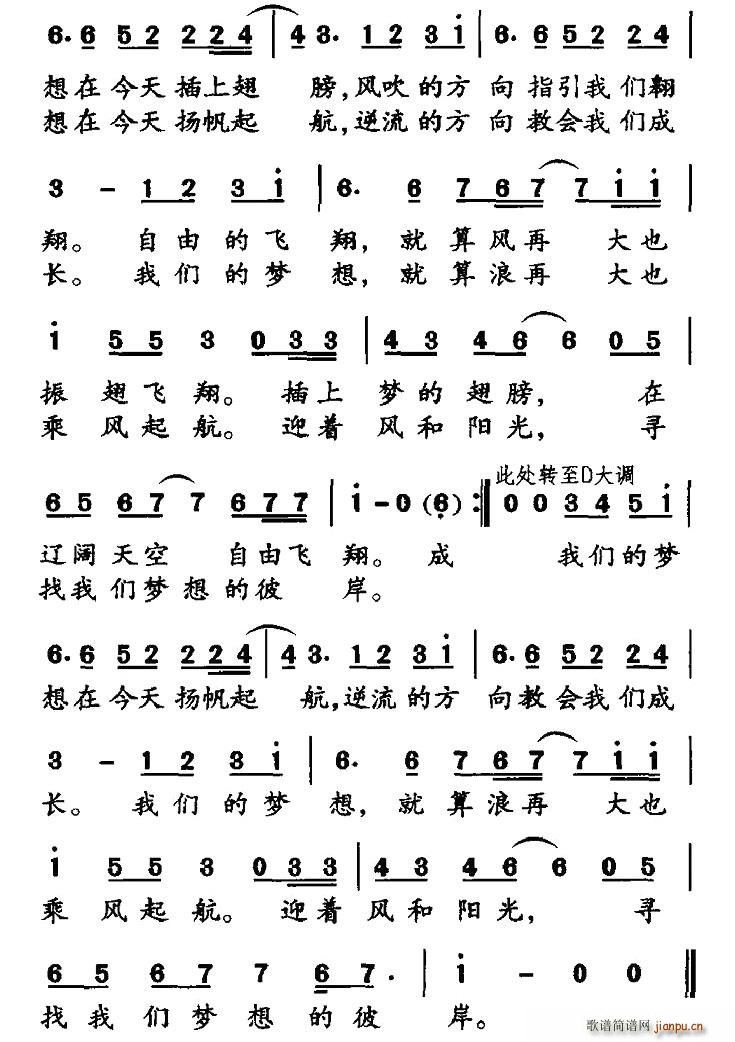 6. 6 5 2 2 2 2 4 | 4 3. 1 2 3 i | 6. 6 5 2 2 4 |
想在今天插上翅 膀,风吹的方 向指引我们翱
想在今天扬帆起 航,逆流的方 向教会我们成
3 - 1 2 3 i | 6. 6 7 6 7 7 i i |
翔。 自由的飞 翔, 就算风再 大也
长。 我们的梦 想, 就算浪再 大也
i 5 5 3 0 3 3 | 4 3 4 6 6 0 5 |
振 翅飞翔。 插上 梦的翅膀, 在
乘 风起航。 迎着 风和阳光, 寻
此处转至D大调
6 5 6 7 7 6 7 7 | i - 0 (6) :‖ 0 0 3 4 5 i |
辽阔天空 自由飞 翔。 成 我们的梦
找我们梦想的彼 岸。
6. 6 5 2 2 2 4 | 4 3. 1 2 3 i | 6. 6 5 2 2 4 |
想在今天扬帆起 航,逆流的方 向教会我们成
3 - 1 2 3 i | 6. 6 7 6 7 7 i i |
长。 我们的梦 想, 就算浪再 大也
i 5 5 3 0 3 3 | 4 3 4 6 6 0 5 |
乘 风起航。 迎着 风和阳光, 寻
6 5 6 7 7 6 7. | i - 0 0 ‖
找我们梦想的彼 岸。
歌谱简谱网 jianpu.cn